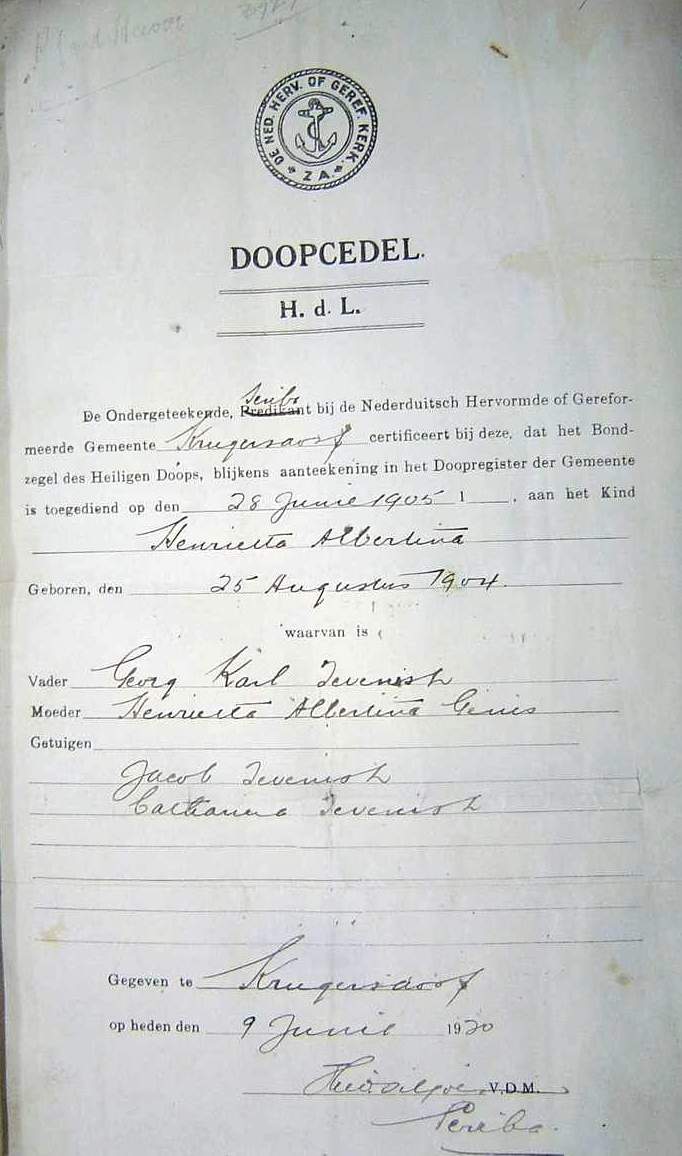 DE NED. HERV. OF GEREF. KERK.
Z A.
DOOPCEDEL.
H. d. L.
Scriba
De Ondergeteekende, Predikant bij de Nederduitsch Hervormde of Gerefor-
meerde Gemeente Krugersdorp certificeert bij deze, dat het Bond-
zegel des Heiligen Doops, blijkens aanteekening in het Doopregister der Gemeente
is toegediend op den 28 Junie 1905 1 , aan het Kind
Henrietta Albertina
Geboren, den 25 Augustus 1904.
waarvan is
Vader Georg Karl Devenish
Moeder Henrietta Albertina Genis
Getuigen
Jacob Devenish
Catharina Devenish
Gegeven te Krugersdorp
op heden den 9 Junie 1920
V.D.M.
Scriba.